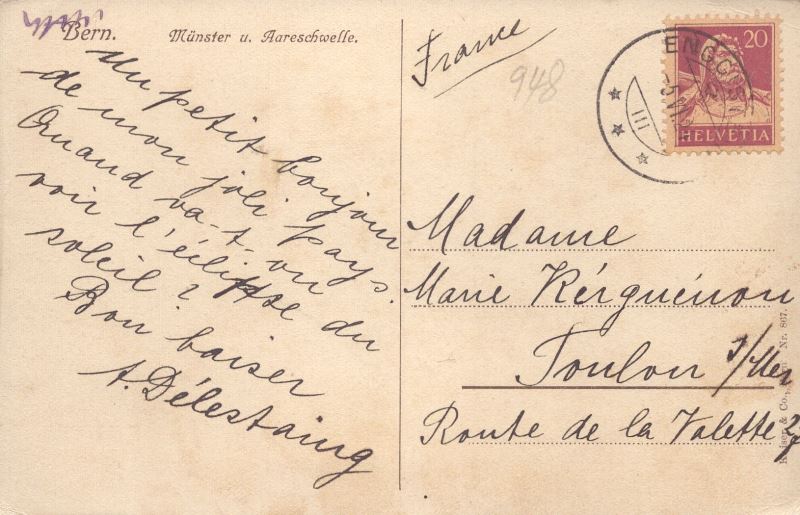 Bern. Münster u. Aareschwelle.
Un petit bonjour
de mon joli pays.
Quand va-t-on
voir l'éclipse du
soleil ?
Bon baiser
A. Délestaing
France
948
20
HELVETIA
III
Madame
Marie Kérguénon
Toulon s/Mer
Route de la Valette
& Co., Nr. 867.